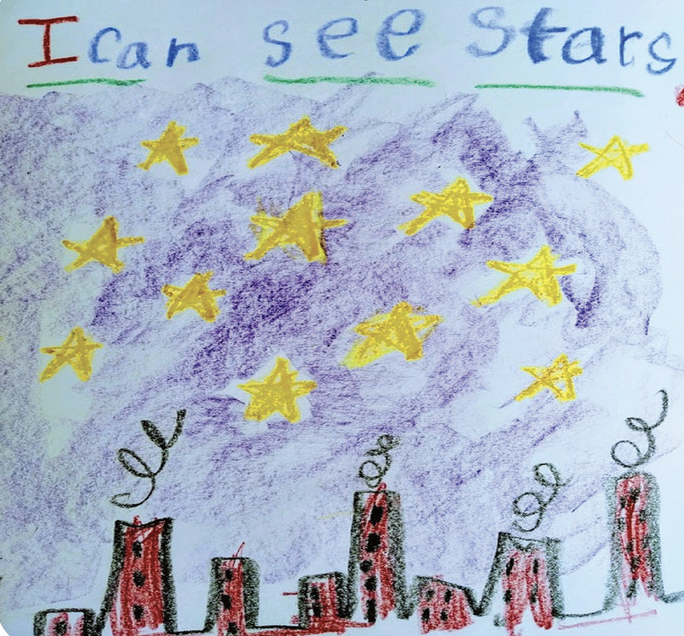 I can see Stars